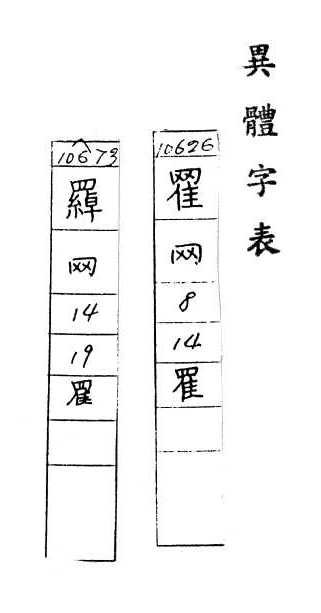 異體字表
10626
网
8
14
10673
网
14
19